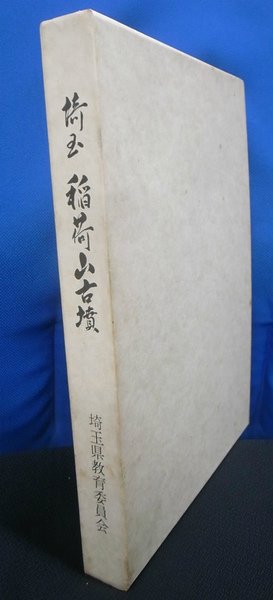 埼玉 稲荷山古墳
埼玉県教育委員会